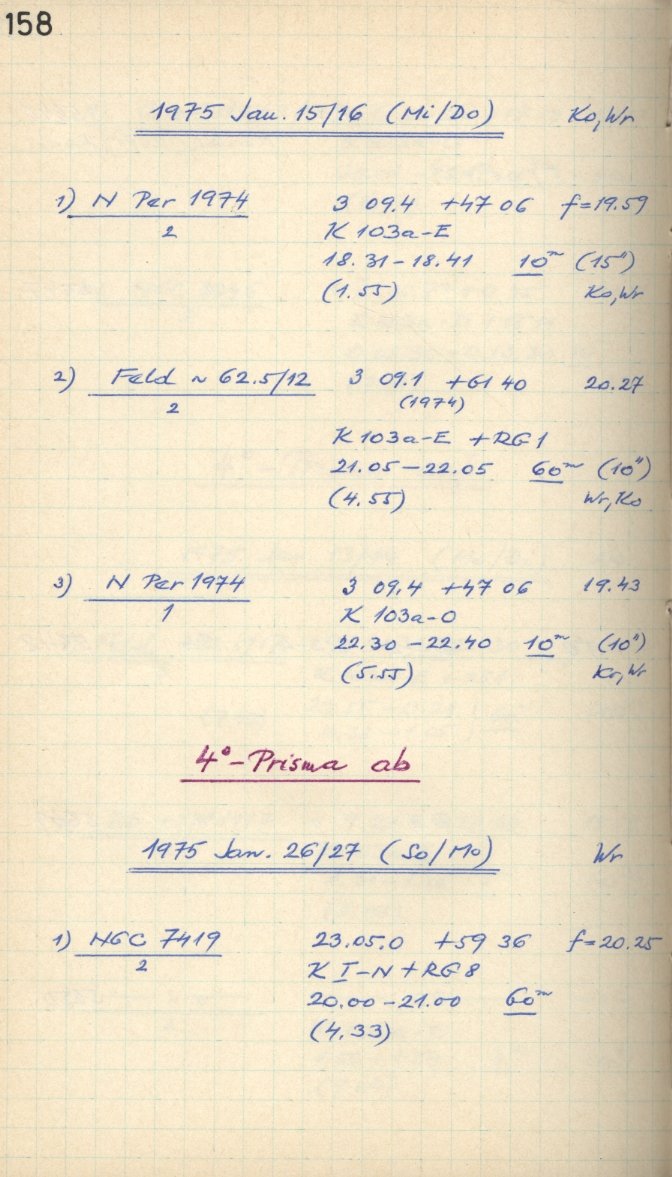 158
1975 Jan. 15/16 (Mi/Do) Ko, Wr
1) N Per 1974 3 09.4 +47 06 f=19.59
2 K 103a-E
18.31-18.41 10m (15")
(1.55) Ko, Wr
2) Feld ~ 62.5/12 3 09.1 +61 40 20.27
2 (1974)
K 103a-E + RG1
21.05-22.05 60m (10")
(4.55) Wr, Ko
3) N Per 1974 3 09.4 +47 06 19.43
1 K 103a-O
22.30-22.40 10m (10")
(5.55) Ko, Wr
4°-Prisma ab
1975 Jan. 26/27 (So/Mo) Wr
1) NGC 7419 23.05.0 +59 36 f=20.25
2 K I-N + RG8
20.00-21.00 60m
(4.33)